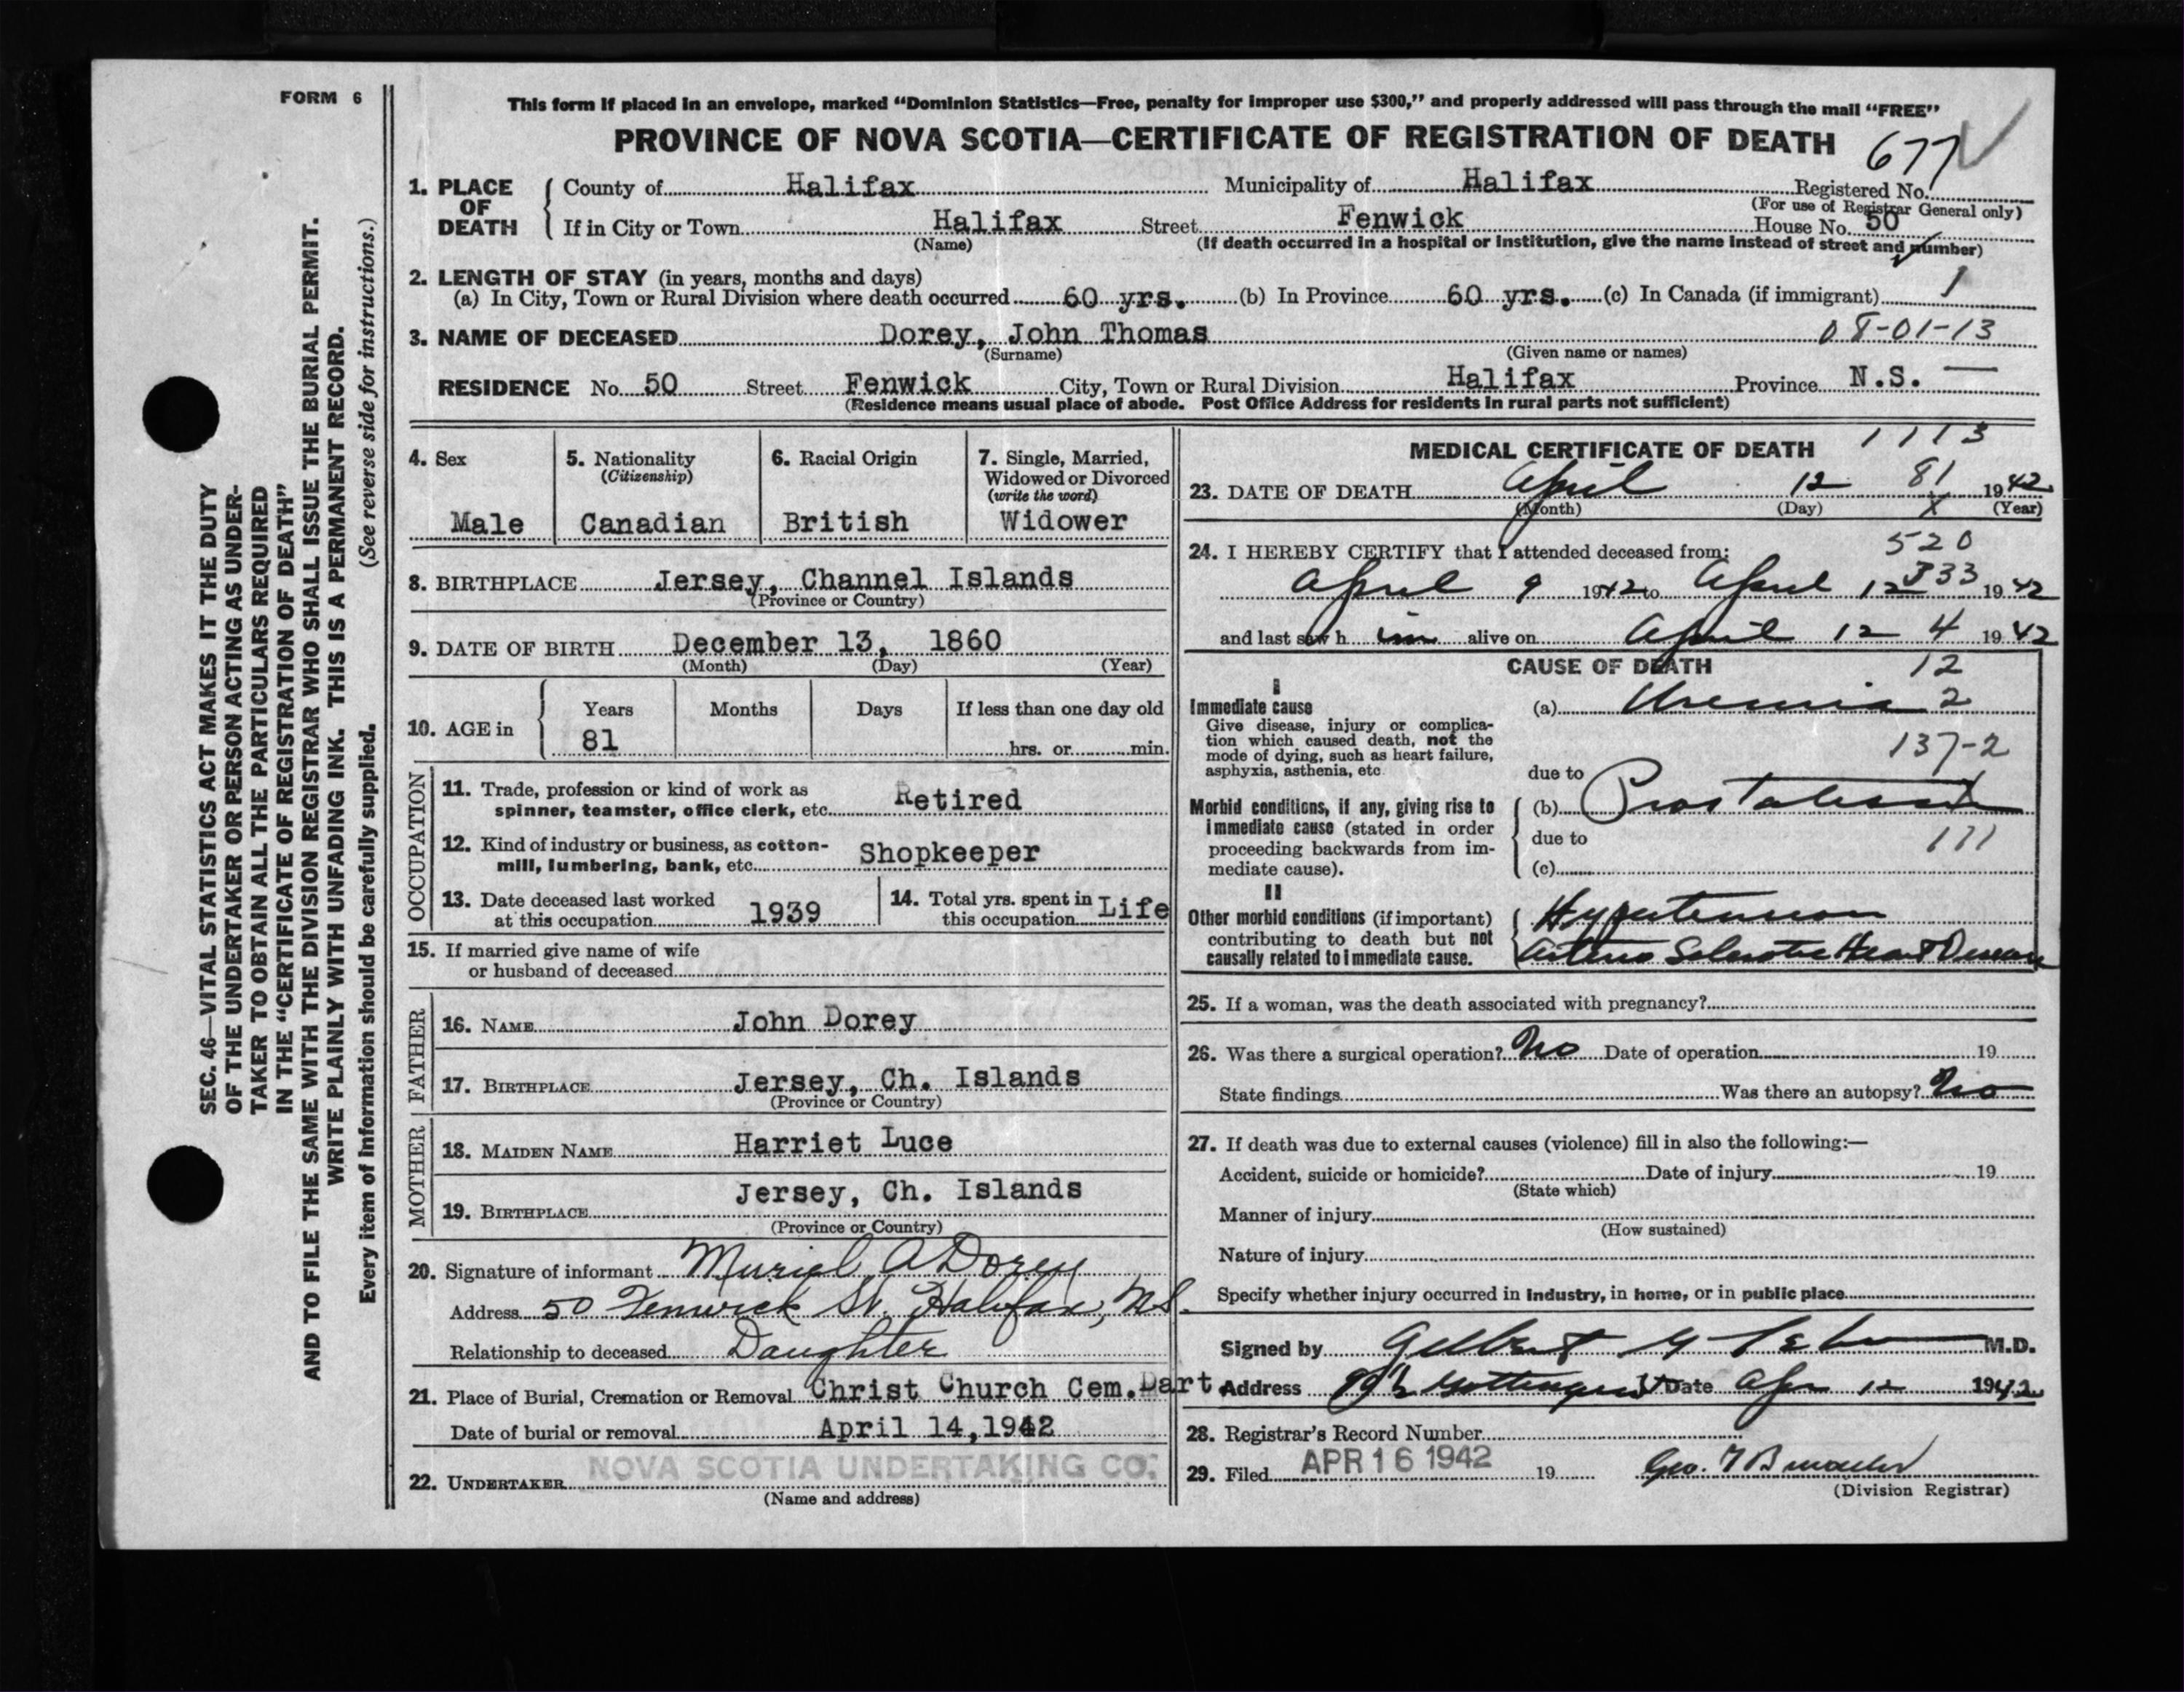 FORM 6
This form if placed in an envelope, marked "Dominion Statistics—Free, penalty for improper use $300," and properly addressed will pass through the mail "FREE"
PROVINCE OF NOVA SCOTIA—CERTIFICATE OF REGISTRATION OF DEATH
677
1. PLACE OF DEATH
County of Halifax Municipality of Halifax Registered No.
(For use of Registrar General only)
If in City or Town Halifax Street Fenwick House No. 50
(Name) (If death occurred in a hospital or institution, give the name instead of street and number)
2. LENGTH OF STAY (in years, months and days)
(a) In City, Town or Rural Division where death occurred 60 yrs. (b) In Province 60 yrs. (c) In Canada (if immigrant) 1
3. NAME OF DECEASED Dorey, John Thomas 08-01-13
(Surname) (Given name or names)
RESIDENCE No. 50 Street Fenwick City, Town or Rural Division Halifax Province N.S. —
(Residence means usual place of abode. Post Office Address for residents in rural parts not sufficient)
4. Sex
Male
5. Nationality
(Citizenship)
Canadian
6. Racial Origin
British
7. Single, Married,
Widowed or Divorced
(write the word)
Widower
8. BIRTHPLACE Jersey, Channel Islands
(Province or Country)
9. DATE OF BIRTH December 13, 1860
(Month) (Day) (Year)
10. AGE in
Years Months Days If less than one day old
81 hrs. or min.
OCCUPATION
11. Trade, profession or kind of work as
spinner, teamster, office clerk, etc. Retired
12. Kind of industry or business, as cotton-
mill, lumbering, bank, etc. Shopkeeper
13. Date deceased last worked
at this occupation 1939
14. Total yrs. spent in
this occupation Life
15. If married give name of wife
or husband of deceased
FATHER
16. NAME John Dorey
17. BIRTHPLACE Jersey, Ch. Islands
(Province or Country)
MOTHER
18. MAIDEN NAME Harriet Luce
19. BIRTHPLACE Jersey, Ch. Islands
(Province or Country)
20. Signature of informant Muriel A Dorey
Address 50 Fenwick St. Halifax, N.S.
Relationship to deceased Daughter
21. Place of Burial, Cremation or Removal Christ Church Cem. Dart
Date of burial or removal April 14, 1942
22. UNDERTAKER NOVA SCOTIA UNDERTAKING CO.
(Name and address)
MEDICAL CERTIFICATE OF DEATH 1113
23. DATE OF DEATH April 12 81 1942
(Month) (Day) X (Year)
24. I HEREBY CERTIFY that I attended deceased from: 520
April 9 1942 to April 12 333 1942
and last saw h im alive on April 12 4 1942
CAUSE OF DEATH 12
I
Immediate cause
Give disease, injury or complica-
tion which caused death, not the
mode of dying, such as heart failure,
asphyxia, asthenia, etc.
(a) Uremia 2
137-2
due to
Morbid conditions, if any, giving rise to
immediate cause (stated in order
proceeding backwards from im-
mediate cause).
(b)
due to 111
(c)
II
Other morbid conditions (if important)
contributing to death but not
causally related to immediate cause.
Hypertension
Arterio Sclerotic Heart Disease
25. If a woman, was the death associated with pregnancy?
26. Was there a surgical operation? No Date of operation 19
State findings Was there an autopsy? No
27. If death was due to external causes (violence) fill in also the following:—
Accident, suicide or homicide? Date of injury 19
(State which)
Manner of injury
(How sustained)
Nature of injury
Specify whether injury occurred in industry, in home, or in public place
Signed by Gilbert M.D.
Address Gottingen St Date Apr 12 1942
28. Registrar's Record Number
29. Filed APR 16 1942 19 Geo.
(Division Registrar)
SEC. 46—VITAL STATISTICS ACT MAKES IT THE DUTY
OF THE UNDERTAKER OR PERSON ACTING AS UNDER-
TAKER TO OBTAIN ALL THE PARTICULARS REQUIRED
IN THE "CERTIFICATE OF REGISTRATION OF DEATH"
AND TO FILE THE SAME WITH THE DIVISION REGISTRAR WHO SHALL ISSUE THE BURIAL PERMIT.
WRITE PLAINLY WITH UNFADING INK. THIS IS A PERMANENT RECORD.
Every item of information should be carefully supplied. (See reverse side for instructions.)